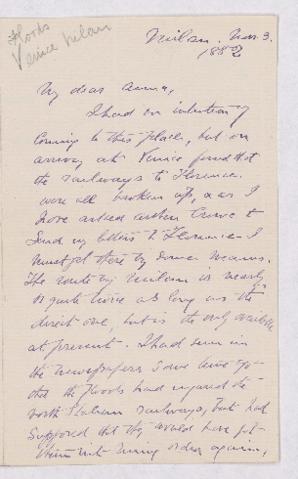 Floods
Venice Milan
Milan. Nov. 3.
1882
My dear Anna,
I had no intention of
coming to this place, but on
arriving at Venice found that
the railways to Florence
were all broken up, & as I
have asked Arthur to
send my letters to Florence I
must get there by some means.
The route by Milan is nearly
or quite twice as long as the
direct one, but is the only available
at present. I had seen in
the newspapers some time ago
that the floods had injured the
north Italian railways, but had
supposed that they would have got
them into running order again,